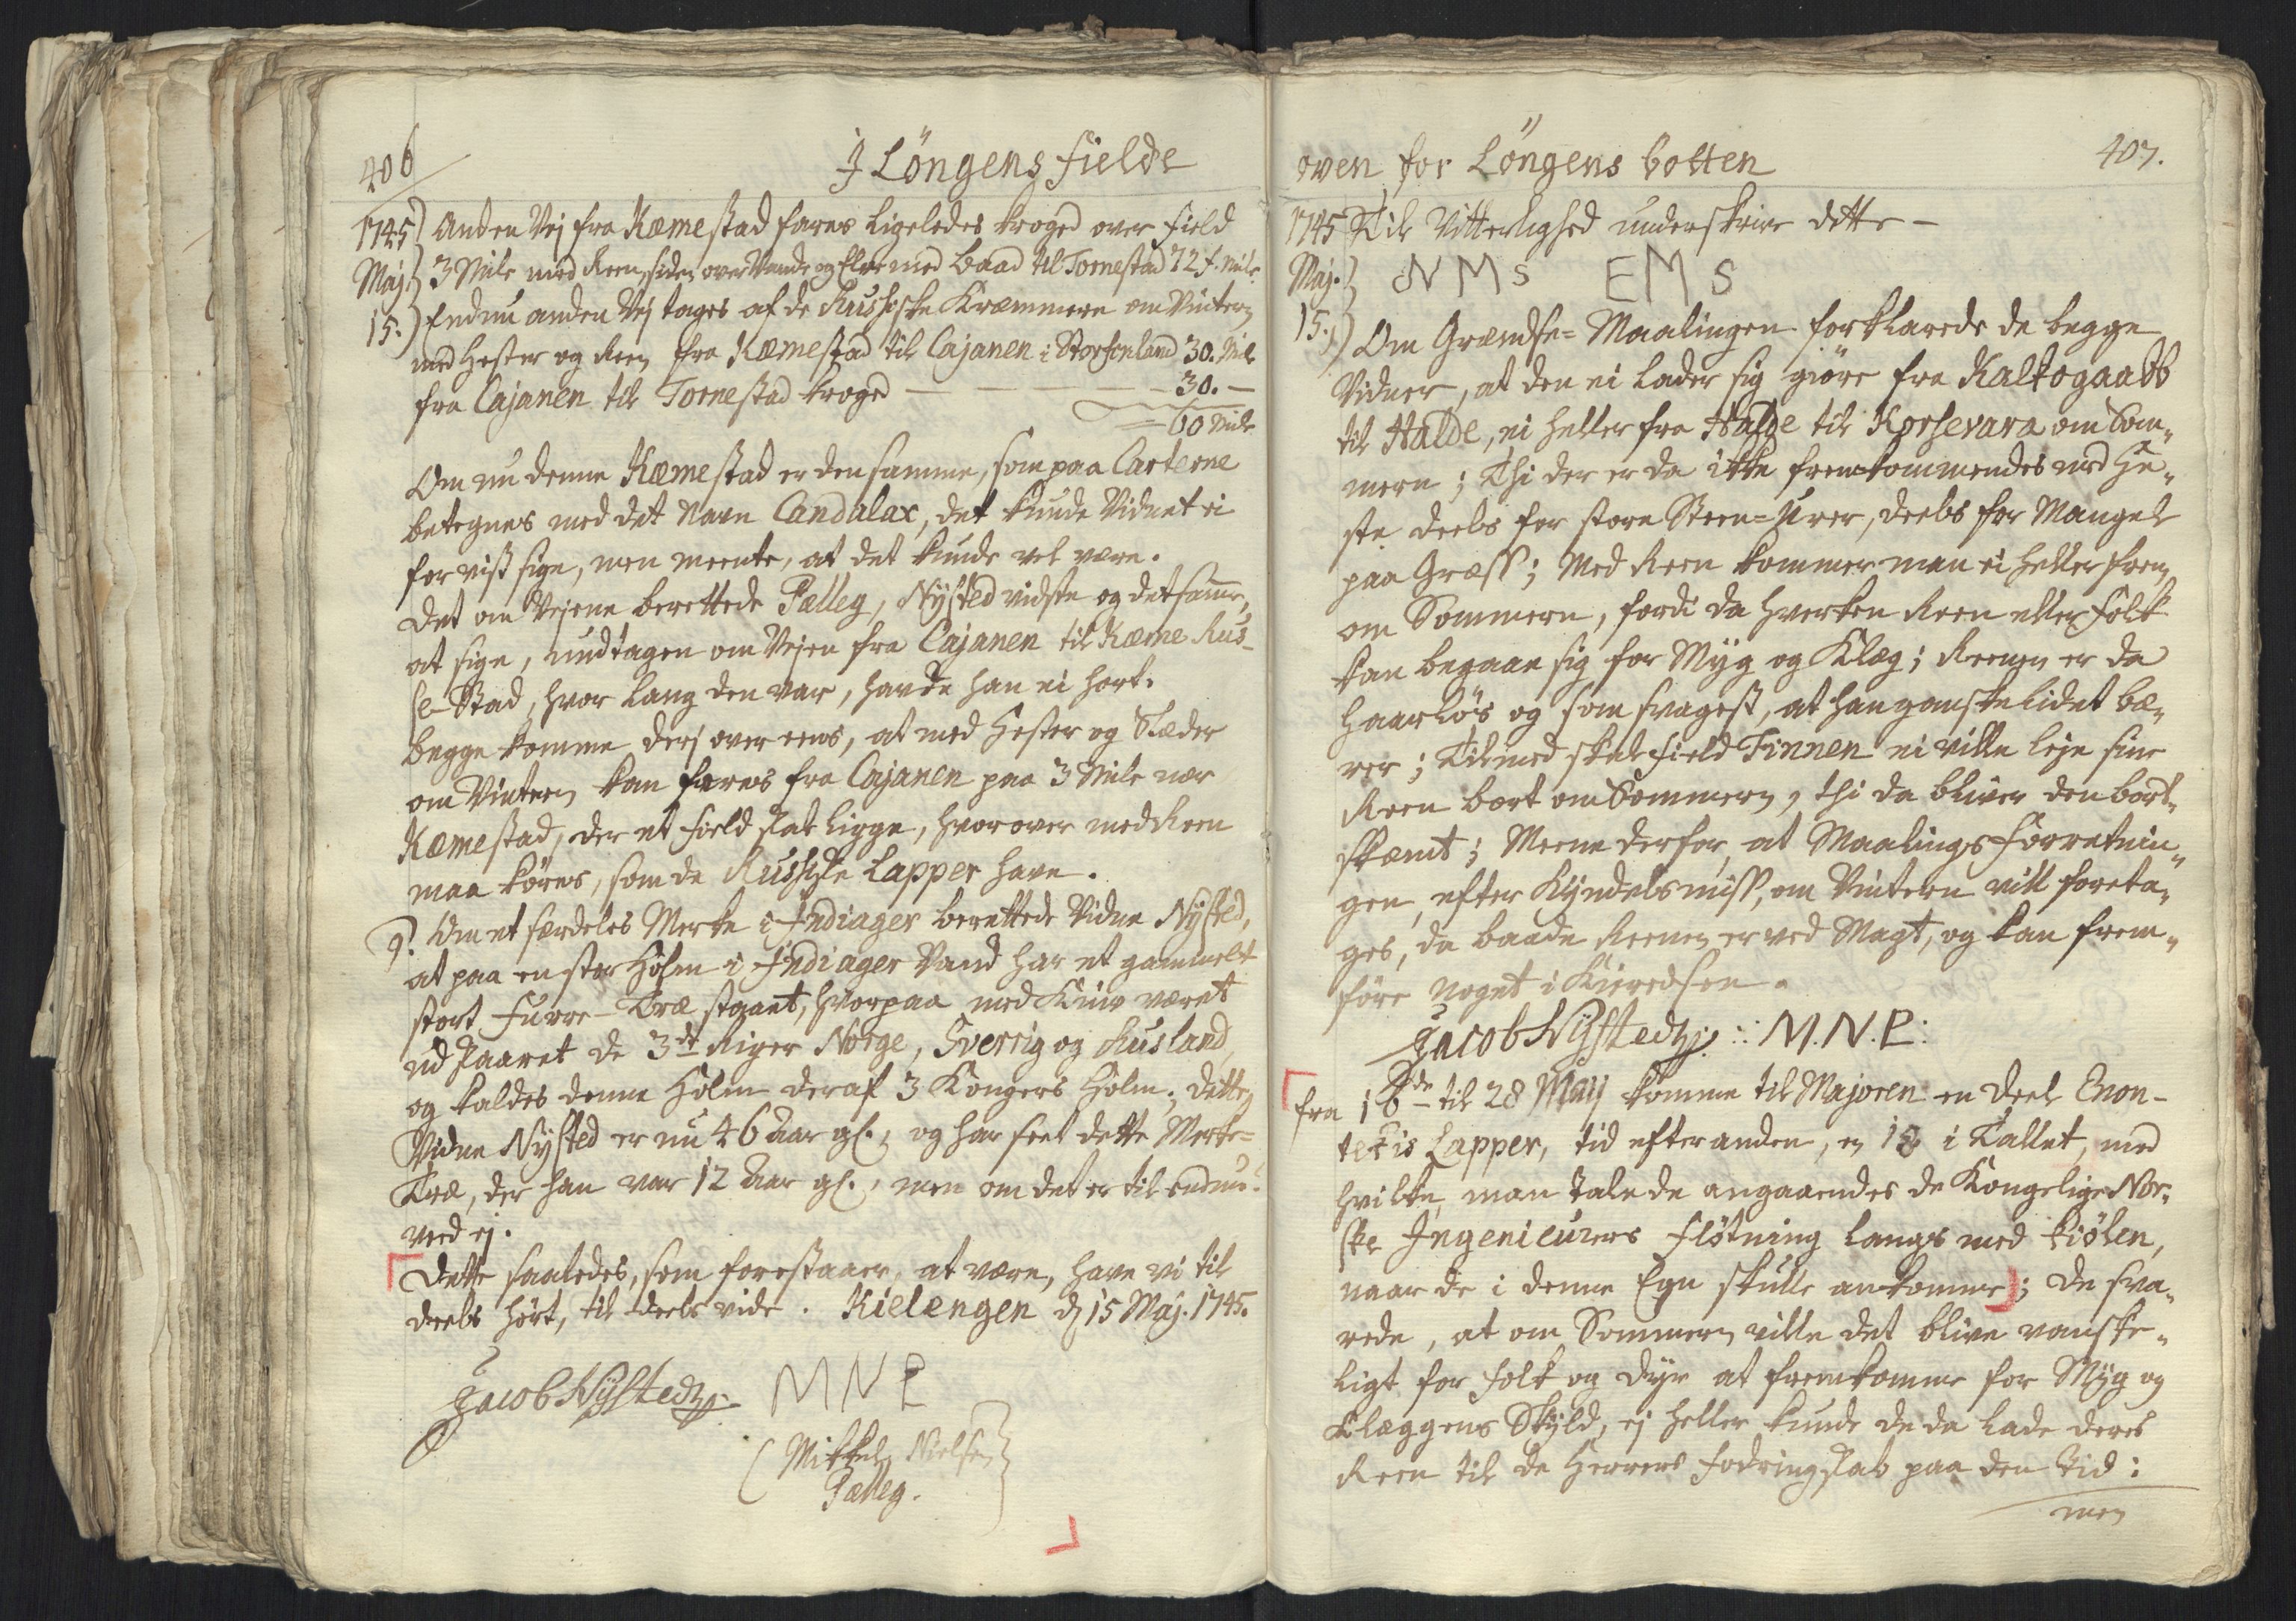 406
J Löngens Fielde
1745) Anden Vej fra Kæmestad fares ligeledes kroged over Field
Maj. 3 Mile med Reen, siden over Vande og Elve med Baad til Tornestad 72 f. Mile
15.) Endnu anden Vej tages af de Russiske Kræmmere om Vintern
med Hester og Reen fra Kæmestad til Cajanen i Storfinland 30. Mile
fra Cajanen til Tornestad kroged — 30. —
60 Mile
Om nu denne Kæmestad er den samme, som paa Carterne
betegnes med det Navn Candalax, det kunde Vidnet ei
for vist sige, men meente, at det kunde vel være.
Det om Vejene berettede Pælleg, Nÿsted vidste og det samme,
at sige, undtagen om Vejen fra Cajanen til Kæme Rus-
se-Stad, hvor lang den var, havde han ei hört.
begge komme der over eens, at med Hester og Slæder
om Vintern kan fares fra Cajanen paa 3 Mile nær
Kæmestad, der et Field skal ligge, hvorover med Reen
maa köres, som de Russiske Lapper have.
9. Om et særdeles Merke i Indiager berettede Vidne Nÿsted,
at paa en stor Holm i Indiager Vand har et gammelt
stort Furre-Træ staaet, hvorpaa med Kniv været
udskaaret de 3de Riger Norge, Sverrig og Rusland,
og kaldes denne Holm deraf 3 Kongers Holm; dette
Vidne Nÿsted er nu 46 Aar gl., og har seet dette Merke-
Træ, der han var 12 Aar gl., men om det er til endnu?
veed ej.
Dette saaledes, som forestaaer, at være, have vi til
deels hört, til deels vide. Kielængen d 15 Maj. 1745.
Jacob Nÿstedt MNP
(Mikkel Nielsen
Pælleg.)
oven for Löngens botten
407.
1745 Til Vitterlighed underskrive dette —
Maj. NMS EMS
15.) Om Grændse-Maalingen forklarede de begge
Vidner, at den ei lader sig giöre fra Kaltogaabb
til Halde, ei heller fra Halde til Korsevara om Som-
mern; Thi der er da ikke fremkommendes med He-
ste deels for store Steen-Urer, deels for Mangel
paa Græss; Med Reen kommer man ei heller frem
om Sommern, fordi da hverken Reen eller Folk
kan begaae sig for Mÿg og Klæg; Reenen er da
Haarlös og som svagest, at han ganske lidet bæ-
rer; Tilmed skal Field Finnen ei ville leje sine
Reen bort om Sommern, thi da bliver den bort-
skæmt; Meene derfor, at Maalings Forretnin-
gen, efter Kÿndelsmiss, om Vintern vill foreta-
ges, da baade Reenen er ved Magt, og kan frem-
före noget i Kieredsen.
Jacob Nÿstedt :: M.N.P:
fra 16de til 28 Maij komme til Majoren en Deel Enon-
tekis Lapper, tid efter anden, en 18 i Tallet, med
hvilke, man talede angaaendes de Kongelige Nor-
ske Ingenieurers Flötning langs med Kiölen,
naar de i denne Egn skulle ankomme; De sva-
rede, at om Sommern ville det blive vanske-
ligt for Folk og Dÿr at fremkomme for Mÿg og
Klæggens Skÿld, ej heller kunde de da lade deres
Reen til de Herrers Fodringskab paa den Tid:
men